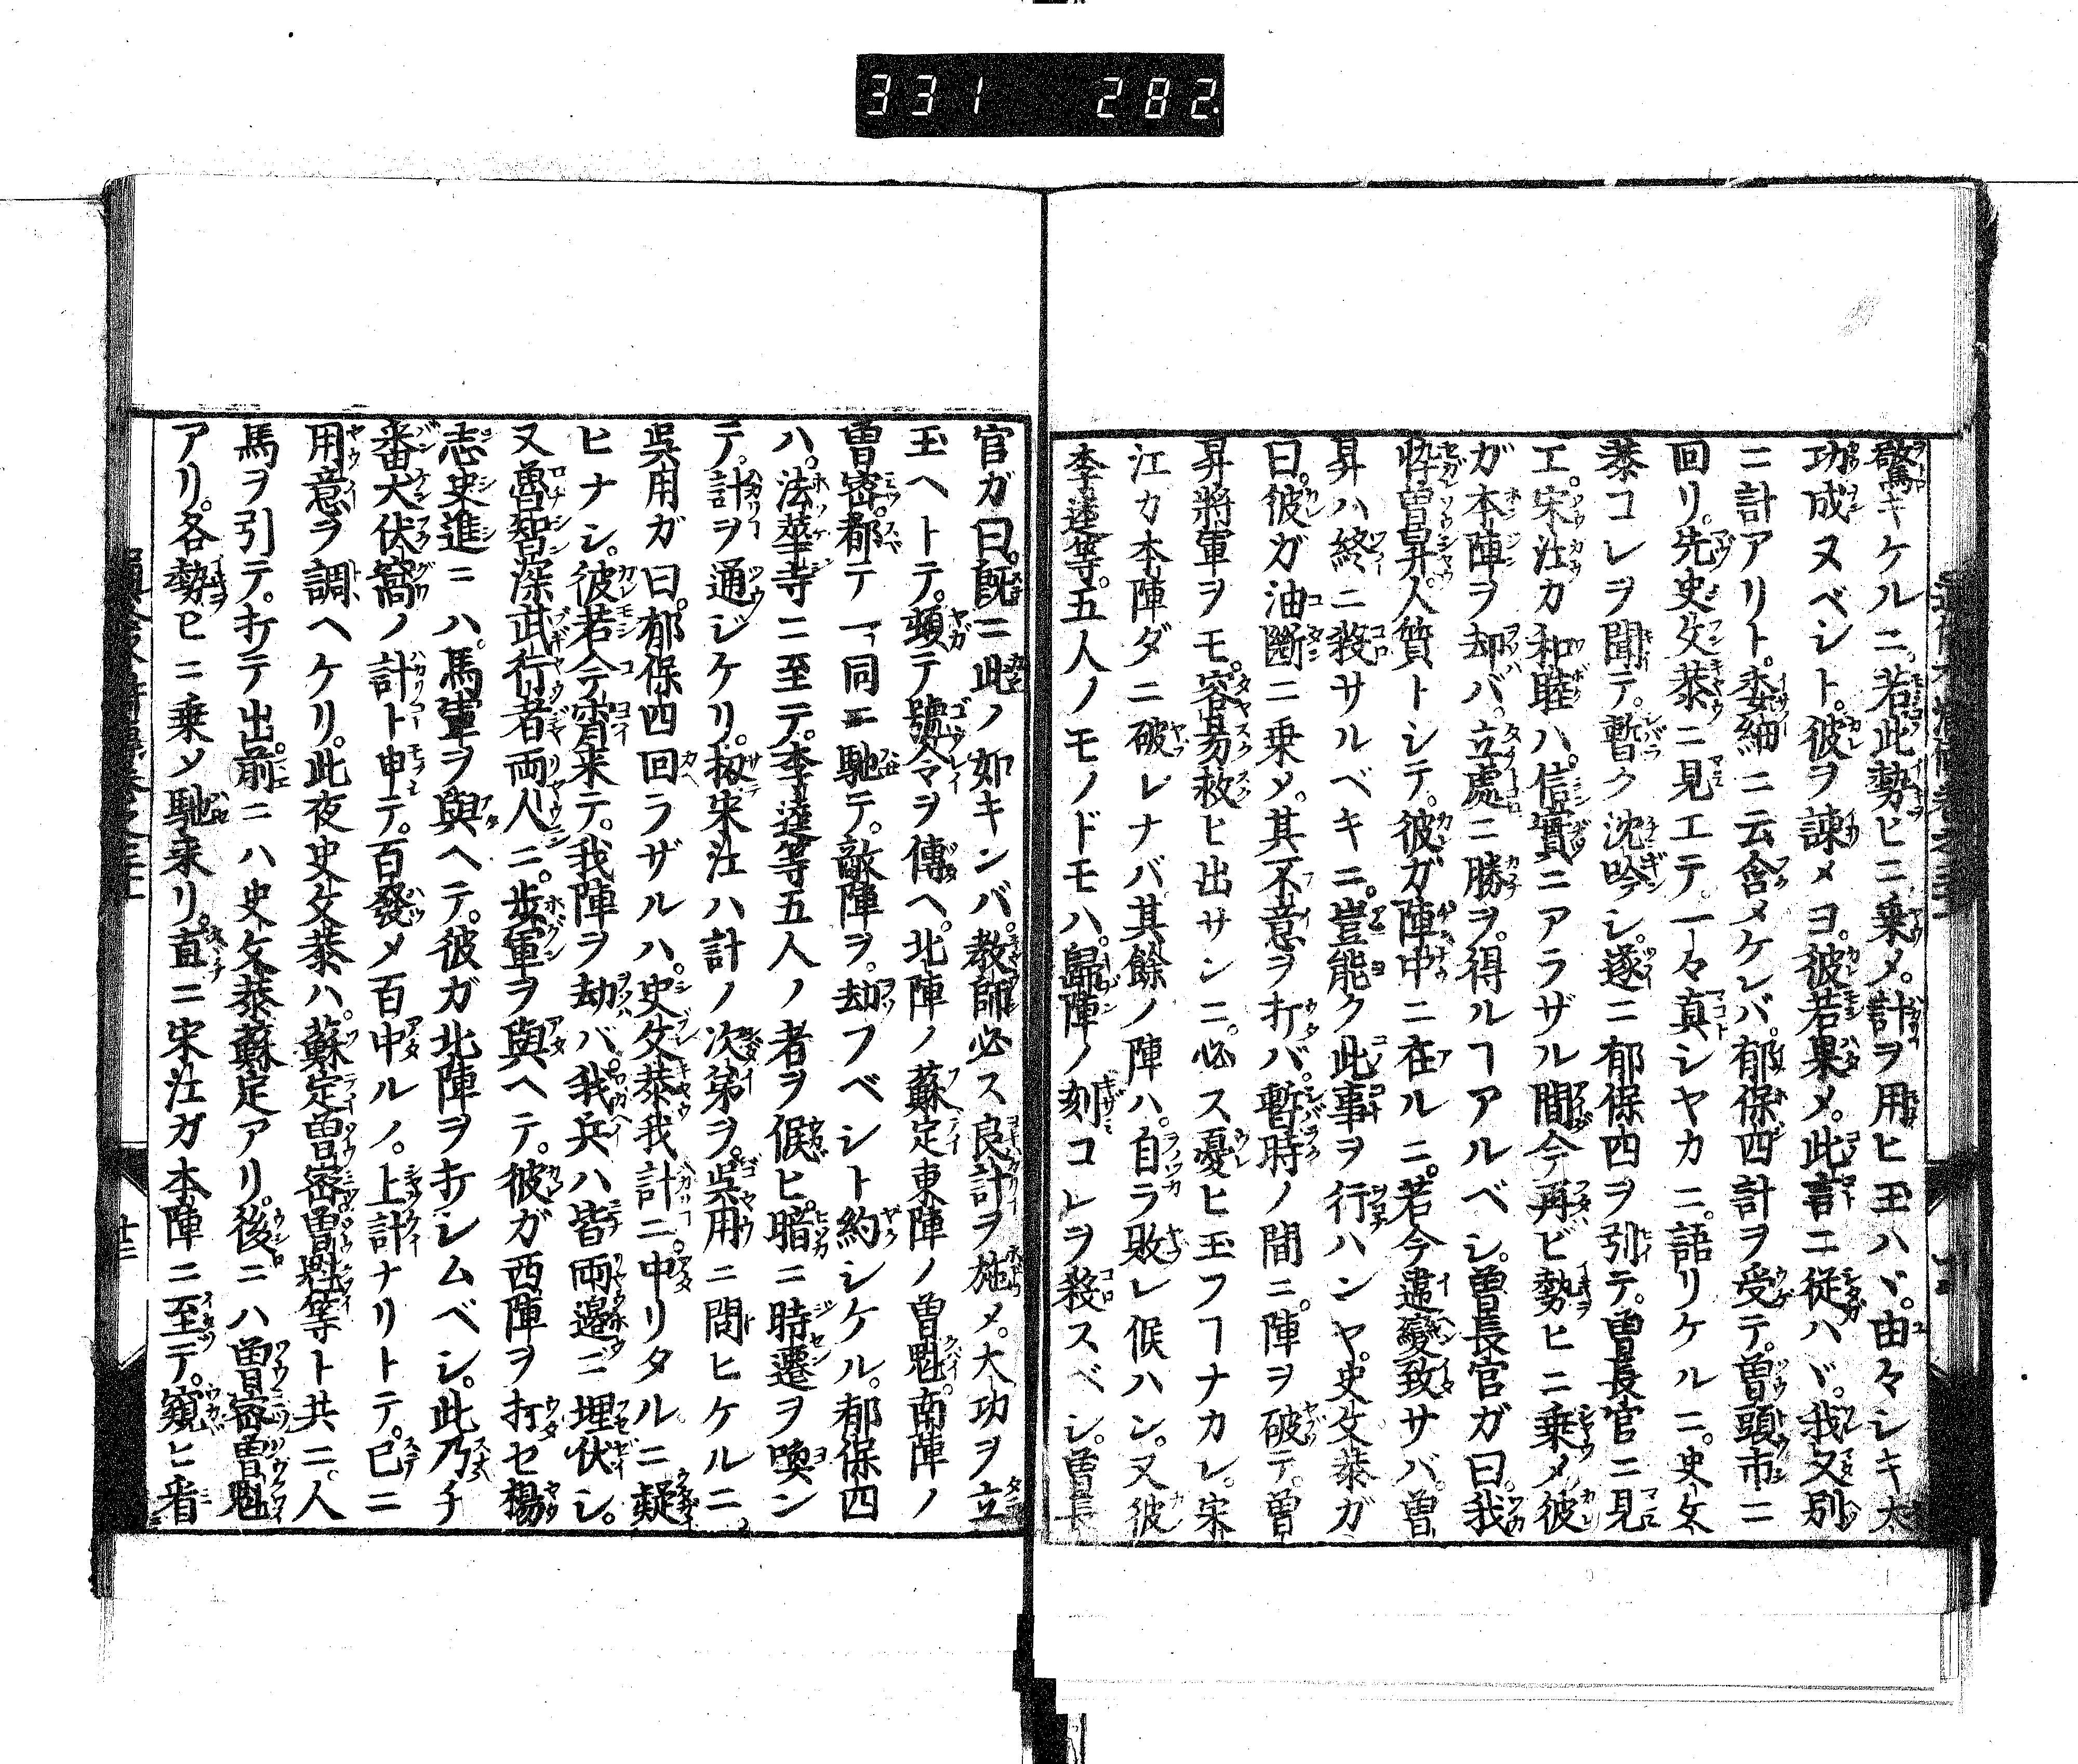 331 282
驚キケルニ。若此勢ヒニ乗メ。計ヲ用ヒ玉ハヾ。由々シキ大
功成ヌベシト。彼ヲ諫メヨ。彼若果メ。此言ニ従ハヾ。我又別
ニ計アリト。委細ニ云含メケレバ。郁保四計ヲ受テ。曽頭市ニ
回リ。先史文恭ニ見エテ。一々真シヤカニ。語リケルニ。史文
恭コレヲ聞テ。暫ク沈吟シ。遂ニ郁保四ヲ引テ。曽長官ニ見
エ。宋江カ和睦ハ。信實ニアラザル間。今再ビ勢ヒニ乗メ彼
ガ本陣ヲ却バ。立處ニ勝ヲ。得ルヿアルベシ。曽長官ガ曰。我
忰曽昇。人質トシテ。彼ガ陣中ニ在ルニ。若今違變致サバ。曽
昇ハ終ニ殺サルベキニ。豈能ク此事ヲ行ハンヤ。史文恭ガ
曰。彼ガ油斷ニ乗メ。其不意ヲ打バ。暫時ノ間ニ。陣ヲ破テ。曽
昇將軍ヲモ。容易救ヒ出サンニ。必ス憂ヒ玉フヿナカレ。宋
江カ本陣ダニ破レナバ其餘ノ陣ハ。自ラ敗レ候ハン。又彼
李逵等。五人ノモノドモハ。歸陣ノ刻コレヲ殺スベシ。曽長
官ガ曰。既ニ此ノ如キンバ。教師必ス良計ヲ施メ。大功ヲ立
玉ヘトテ。頓テ號令ヲ傳ヘ。北陣ノ蘇定東陣ノ曽魁。南陣ノ
曽密。都テ一同ニ馳テ。敵陣ヲ。却フベシト約シケル。郁保四
ハ。法華寺ニ至テ。李逵等五人ノ者ヲ候ヒ。暗ニ時遷ヲ喚ン
テ。計ヲ通ジケリ。扨宋江ハ計ノ次第ヲ。呉用ニ問ヒケルニ。
呉用ガ曰。郁保四回ラザルハ。史文恭我計ニ。中リタルニ疑
ヒナシ。彼若今宵来テ。我陣ヲ劫バ。我兵ハ皆両邉ニ埋伏シ。
又魯智深武行者両人ニ。歩軍ヲ與ヘテ。彼ガ西陣ヲ打セ楊
志史進ニハ。馬軍ヲ與ヘテ。彼ガ北陣ヲ打シムベシ。此乃チ
番犬伏窩ノ計ト申テ。百發メ百中ルノ。上計ナリトテ。已ニ
用意ヲ調ヘケリ。此夜史文恭ハ。蘇定曽密曽魁等ト共ニ。人
馬ヲ引テ。打テ出。前ニハ史文恭蘇定アリ。後ニハ曽密曽魁
アリ。各勢ヒニ乗メ馳来リ。直ニ宋江ガ本陣ニ至テ。窺ヒ看